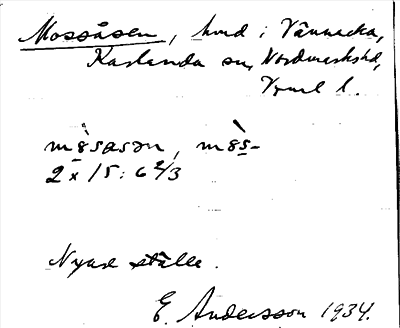 Mossåsen, hmd i Vännacka,
Karlanda sn, Nordmarkshd,
Vrml l.
mòsasən, mòs-
2 x 15:6 2/3
Nyare ställe.
E. Andersson 1934.